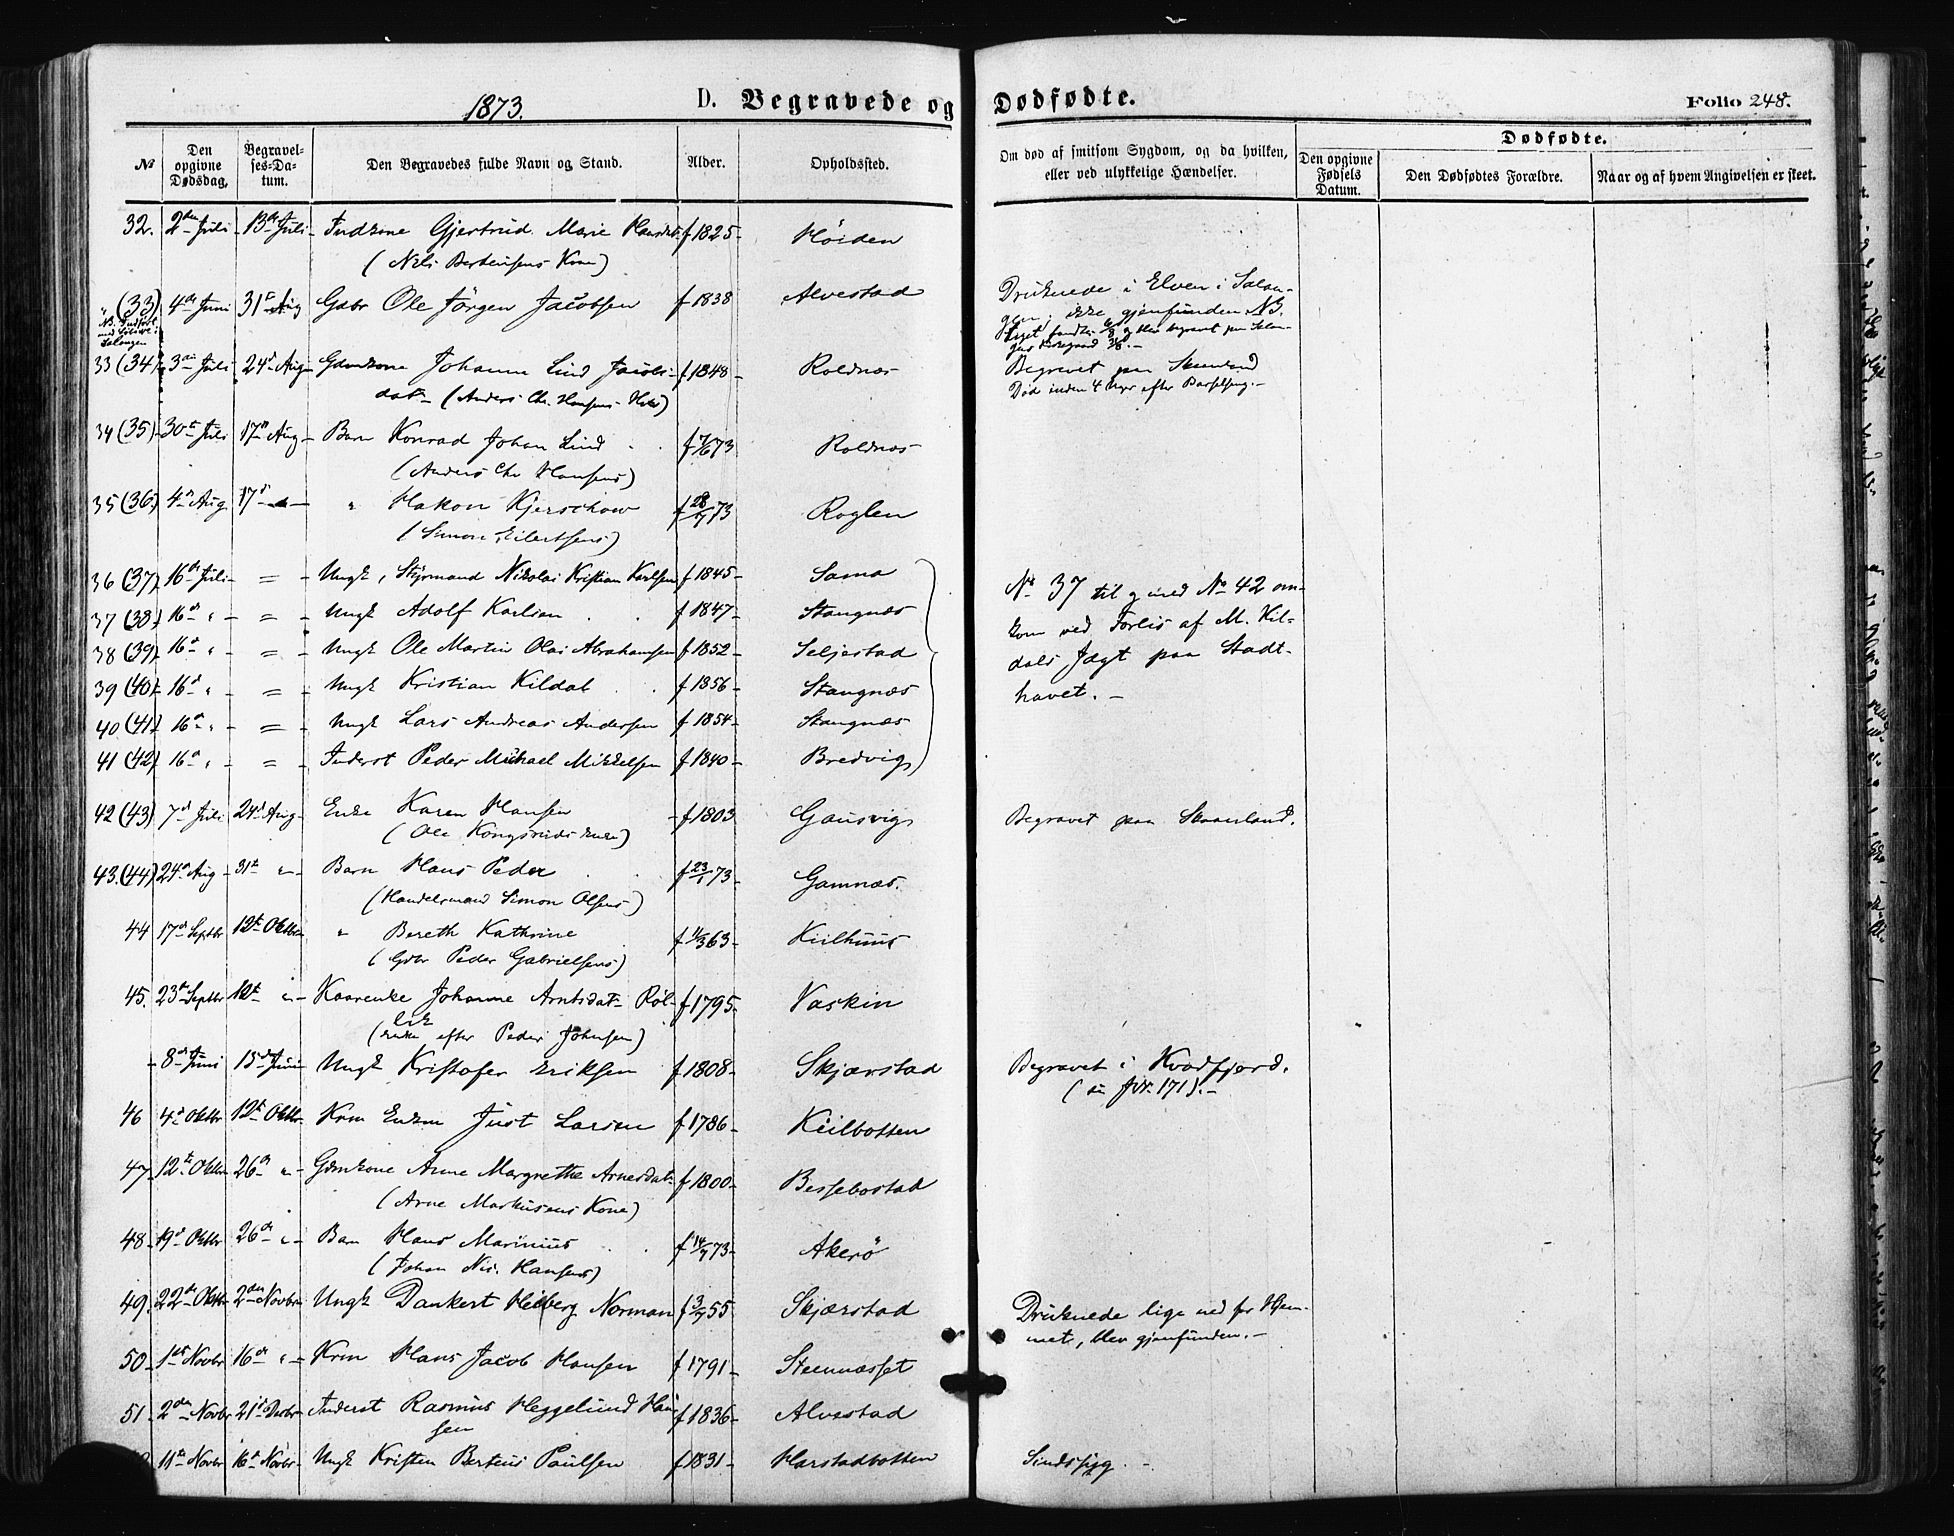 1873.
D. Begravede og Dødfødte.
Folio 248.
№
Den opgivne Dødsdag.
Begravelses-Datum.
Den Begravedes fulde Navn og Stand.
Alder.
Opholdssted.
Om død af smitsom Sygdom, og da hvilken, eller ved ulykkelige Hændelser.
Dødfødte.
Den opgivne Fødsels Datum.
Den Dødfødtes Forældre.
Naar og af hvem Angivelsen er skeet.
32. 2den Juli 13de Juli Indkone Gjertrud Marie Hansdat. f 1825 Høiden
(Nils Berteusens Kone)
(33) 4de Juni 31te Aug Gdbr Ole Jørgen Jacobsen f 1838 Alvestad Druknede i Elven i Salan-
gen, ikke gjenfunden NB.
33 (34) 3die Juli 24de Aug Gdmkone Johanna Lind Jacobs- f 1848 Roldnæs Begravet paa
dat. (Anders Chr. Hansens) Død inden 4 Uger efter Barselseng.
34 (35) 30te Juli 17de Aug Barn Konrad Johan Lind f 7/6 73 Roldnæs
(Anders Chr Hansens)
35 (36) 4de Aug 17de " Hakon Kjerschow f 28/7 73 Roglen
(Simon Eilertsens)
36 (37) 16de Juli = Ungk, Styrmand Nikolai Kristian Karlsen f 1845 Sama № 37 til og med № 42 om-
37 (38) 16de " = Ungk Adolf Karlsen f 1847 Stangnæs kom ved Forlis af M. Kil-
38 (39) 16de " = Ungk Ole Martin Olai Abrahamsen f 1852 Seljestad dals Jagt paa Stadt-
39 (40) 16de " = Ungk Kristian Kildal f 1856 Stangnæs havet.
40 (41) 16de " = Ungk Lars Andreas Andersen f 1854 Stangnæs
41 (42) 16de " = Inderst Peder Michael Mikkelsen f 1840 Bredvig
42 (43) 7de Juli 24de Aug Enke Karen Hansen f 1803 Gausvig Begravet paa Skaanland.
(Ole Kongsruds Enke)
43. (44) 24de Aug 31te " Barn Hans Peder f 23/1 73 Gamnæs.
(Handelsmand Simon Olsens)
44 17de Septbr 12te Oktbr " Bereth Kathrine f 1/3 63 Kiilhuus
(Gdbr Peder Gabrielsens)
45. 23de Septbr 12te " Kaarenke Johanne Arntsdat. Røl- f 1795 Vaskin
lik
(Enke efter Peder Johnsen)
8de Juni 15de Juni Ungk Kristofer Eriksen f 1808 Skjærstad Begravet i Kvædfjord.
(171).
46 4de Oktbr 12te Oktbr Krm Enkm Just Larsen f 1786 Kiilbotten
47 12te Oktbr 26de " Gdmkone Anne Margrethe Arnesdat f 1800 Bessebostad
(Arne Markusens Kone)
48 19de Oktbr 26de " Barn Hans Marinius f 14/7 73 Akerö
(Johan Nic. Hansens)
49. 22de Oktbr 2den Novbr Ungk Dankert Heiberg Norman f 3/7 55 Skjærstad Druknede lige ned for Hjem-
met, blev gjenfunden.
50 1ste Novbr 16de " Krm Hans Jacob Hansen f 1791 Steennæsset
51 2den Novbr 21de Decbr Inderst Rasmus Heggelund Han- f 1836 Alvestad
sen
11te Novbr 16de Novbr Ungk Kristen Berteus Paulsen f 1831 Harstadbotten Sindssyg.